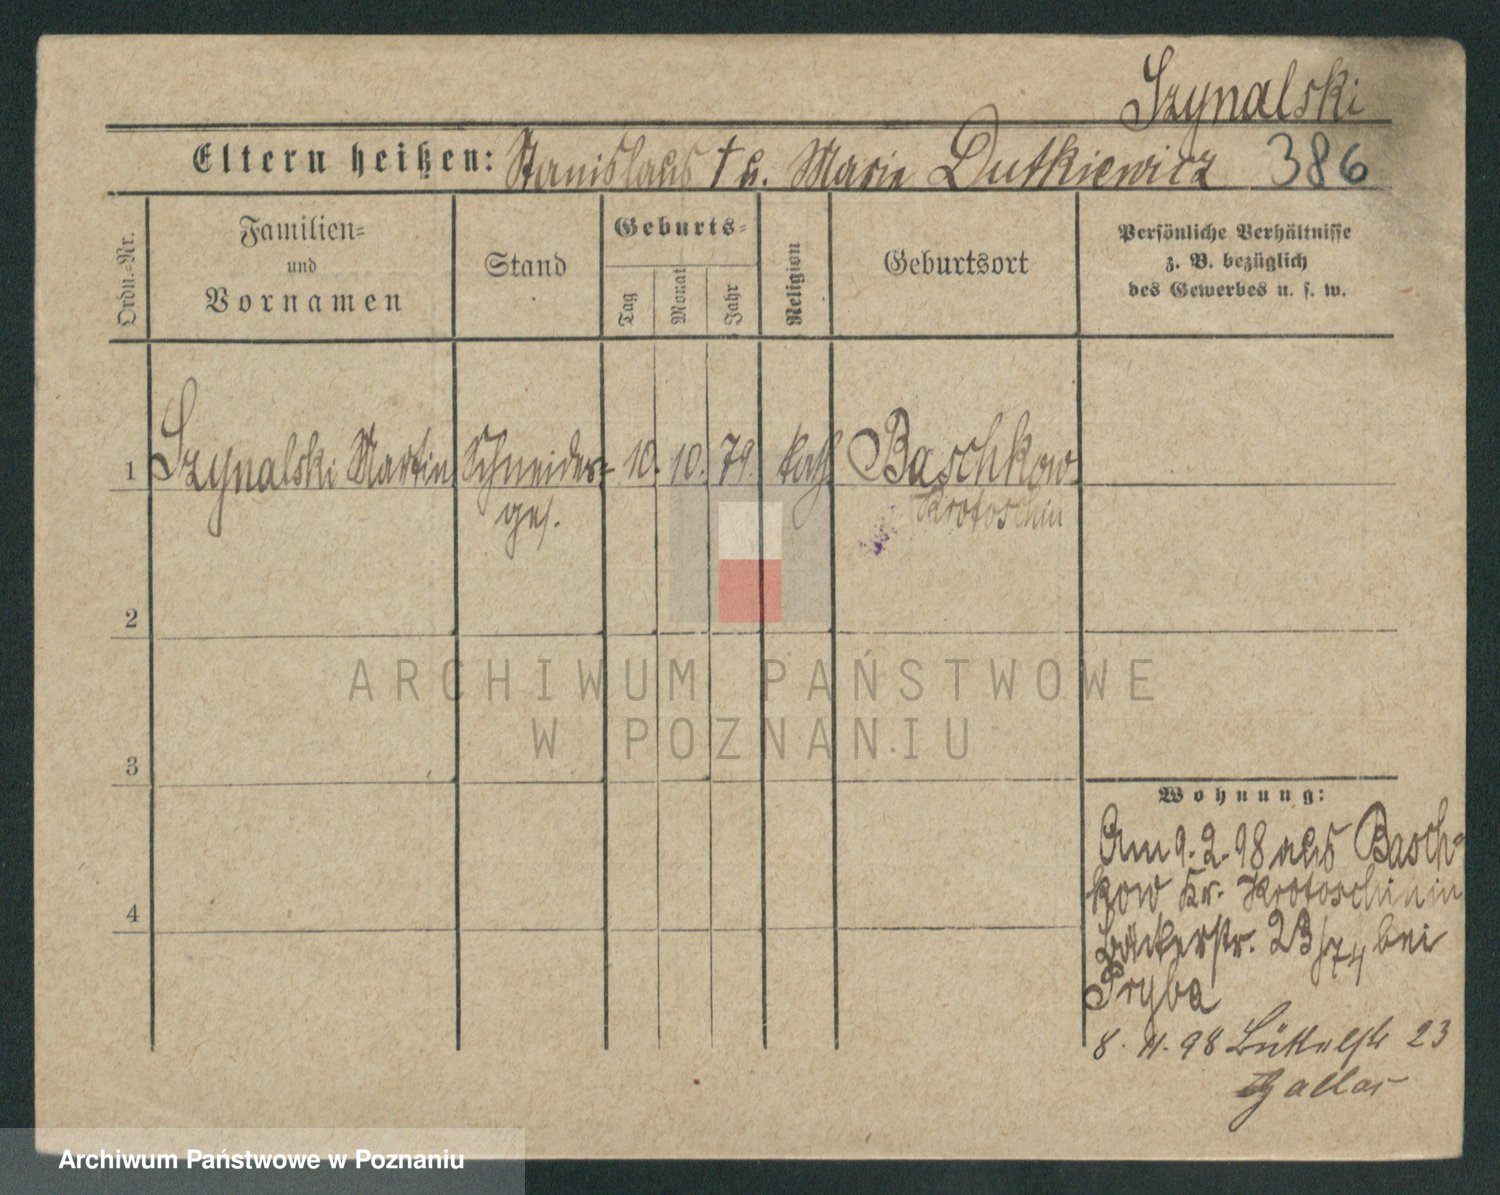 Szynalski
Eltern heißen: Stanislaus † u. Marie Dutkiewicz 386
Ordn.-Nr.
Familien-
und
Vornamen
Stand
Geburts-
Tag
Monat
Jahr
Religion
Geburtsort
Persönliche Verhältnisse
z. B. bezüglich
des Gewerbes u. s. w.
1 Szynalski Martin Schneider- 10. 10. 79. kath. Baschkow
ges. Krotoschin
2
ARCHIWUM PAŃSTWOWE
W POZNANIU
3
Wohnung:
Am 9. 2. 98 aus Basch-
kow Kr. Krotoschin in
Bäckerstr. 23/74 bei
Pryba
4
8. 11. 98 23
Archiwum Państwowe w Poznaniu